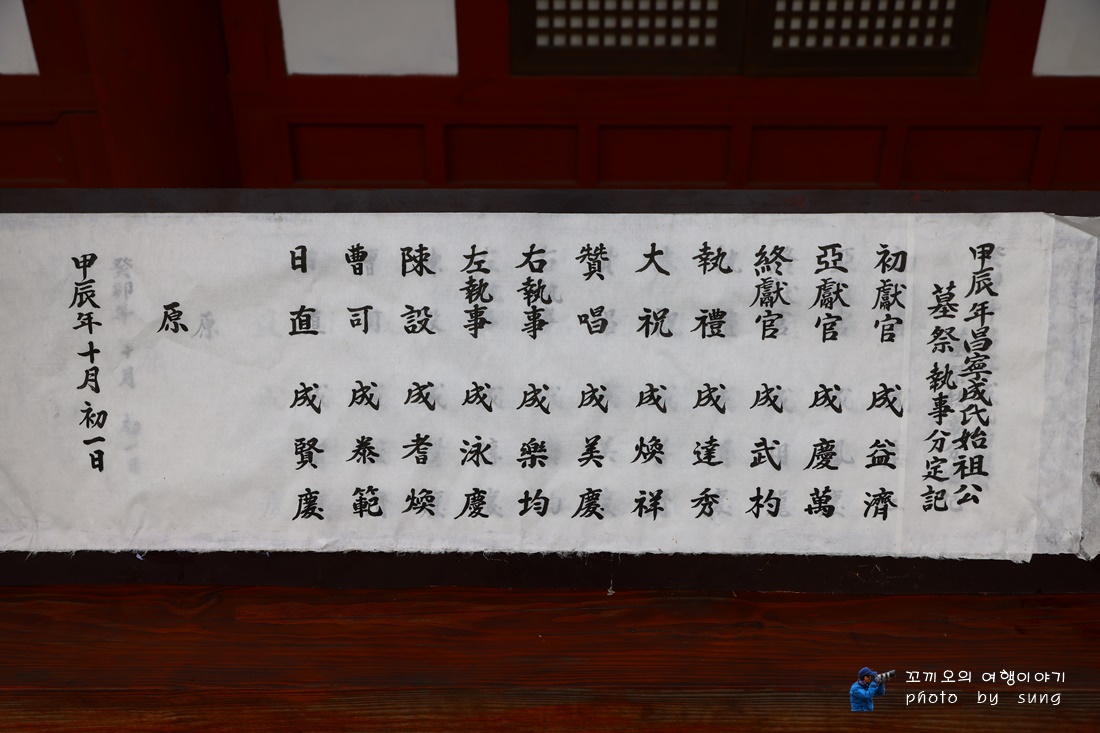 甲辰年昌寧成氏始祖公
墓祭執事分定記
初獻官 成益濟
亞獻官 成慶萬
終獻官 成武杓
執禮 成達秀
大祝 成煥祥
贊唱 成美慶
右執事 成樂均
左執事 成泳慶
陳設 成耆煥
曹司 成泰範
日直 成賢慶
原
甲辰年十月初一日
꼬끼오의 여행이야기
photo by sung